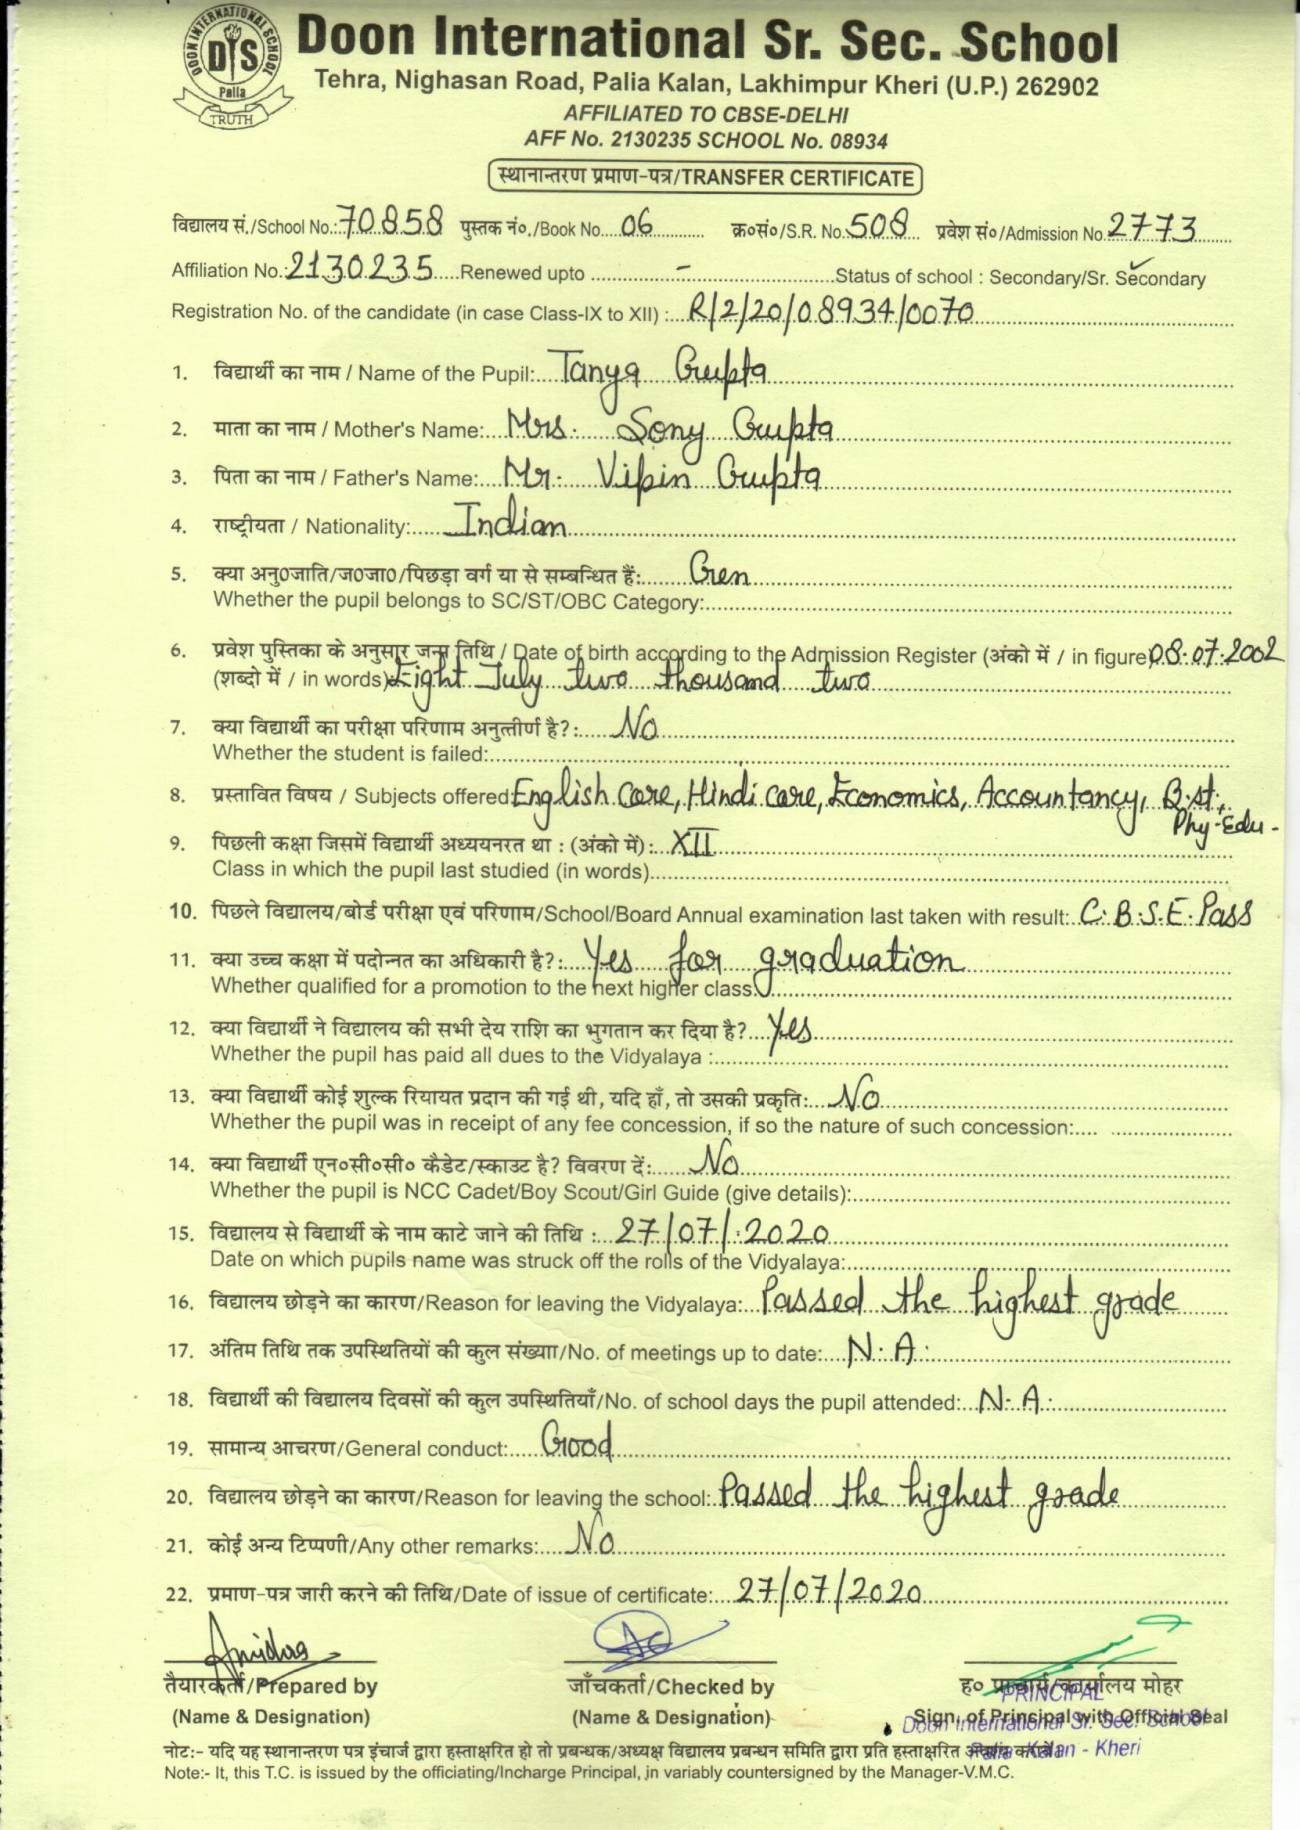 DOON INTERNATIONAL SCHOOL
DIS
Palia
TRUTH
Doon International Sr. Sec. School
Tehra, Nighasan Road, Palia Kalan, Lakhimpur Kheri (U.P.) 262902
AFFILIATED TO CBSE-DELHI
AFF No. 2130235 SCHOOL No. 08934
स्थानान्तरण प्रमाण-पत्र/TRANSFER CERTIFICATE
विद्यालय सं./School No.:70858 पुस्तक नं०./Book No. 06 क्र०सं०/S.R. No. 508 प्रवेश सं०/Admission No. 2773
Affiliation No. 2130235 Renewed upto - Status of school : Secondary/Sr. Secondary
Registration No. of the candidate (in case Class-IX to XII) : R/2/20/08934/0070
1. विद्यार्थी का नाम / Name of the Pupil: Tanya Gupta
2. माता का नाम / Mother's Name: Mrs. Sony Gupta
3. पिता का नाम / Father's Name: Mr. Vipin Gupta
4. राष्ट्रीयता / Nationality: Indian
5. क्या अनु0जाति/ज0जा0/पिछड़ा वर्ग या से सम्बन्धित हैं: Gen
Whether the pupil belongs to SC/ST/OBC Category:
6. प्रवेश पुस्तिका के अनुसार जन्म तिथि / Date of birth according to the Admission Register (अंको में / in figure) 08.07.2002
(शब्दो में / in words) Eight July two thousand two
7. क्या विद्यार्थी का परीक्षा परिणाम अनुत्तीर्ण है?: No
Whether the student is failed:
8. प्रस्तावित विषय / Subjects offered: English Core, Hindi core, Economics, Accountancy, B.st.,
Phy-Edu-
9. पिछली कक्षा जिसमें विद्यार्थी अध्ययनरत था : (अंको में): XII
Class in which the pupil last studied (in words)
10. पिछले विद्यालय/बोर्ड परीक्षा एवं परिणाम/School/Board Annual examination last taken with result: C.B.S.E. Pass
11. क्या उच्च कक्षा में पदोन्नत का अधिकारी है?: Yes for graduation
Whether qualified for a promotion to the next higher class:
12. क्या विद्यार्थी ने विद्यालय की सभी देय राशि का भुगतान कर दिया है? Yes
Whether the pupil has paid all dues to the Vidyalaya :
13. क्या विद्यार्थी कोई शुल्क रियायत प्रदान की गई थी, यदि हाँ, तो उसकी प्रकृति: No
Whether the pupil was in receipt of any fee concession, if so the nature of such concession:
14. क्या विद्यार्थी एन०सी०सी० कैडेट/स्काउट है? विवरण दें: No
Whether the pupil is NCC Cadet/Boy Scout/Girl Guide (give details):
15. विद्यालय से विद्यार्थी के नाम काटे जाने की तिथि : 27/07/2020
Date on which pupils name was struck off the rolls of the Vidyalaya:
16. विद्यालय छोड़ने का कारण/Reason for leaving the Vidyalaya: Passed the highest grade
17. अंतिम तिथि तक उपस्थितियों की कुल संख्याा/No. of meetings up to date: N.A.
18. विद्यार्थी की विद्यालय दिवसों की कुल उपस्थितियाँ/No. of school days the pupil attended: N.A.
19. सामान्य आचरण/General conduct: Good
20. विद्यालय छोड़ने का कारण/Reason for leaving the school: Passed the highest grade
21. कोई अन्य टिप्पणी/Any other remarks: No
22. प्रमाण-पत्र जारी करने की तिथि/Date of issue of certificate: 27/07/2020
तैयारकर्ता/Prepared by जाँचकर्ता/Checked by ह० प्राचार्य/कार्यालय मोहर
PRINCIPAL
(Name & Designation) (Name & Designation) Sign. of Principal with Official Seal
Doon International Sr. Sec. School
Palia Kalan - Kheri
नोटः- यदि यह स्थानान्तरण पत्र इंचार्ज द्वारा हस्ताक्षरित हो तो प्रबन्धक/अध्यक्ष विद्यालय प्रबन्धन समिति द्वारा प्रति हस्ताक्षरित
Note:- It, this T.C. is issued by the officiating/Incharge Principal, in variably countersigned by the Manager-V.M.C.